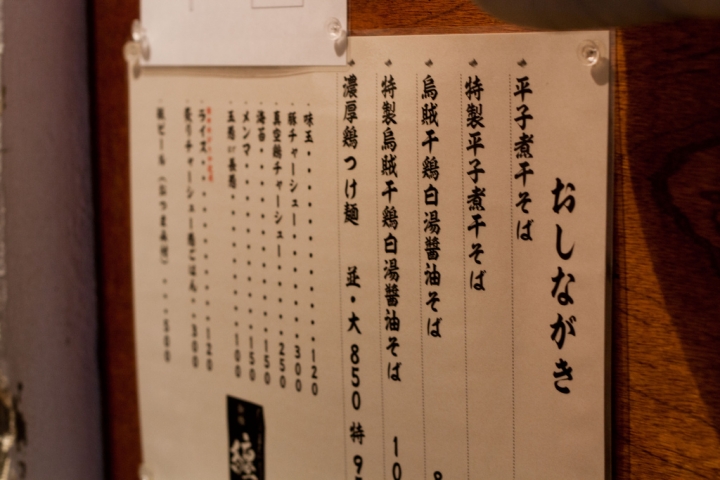 おしながき
平子煮干そば
特製平子煮干そば
烏賊干鶏白湯醤油そば 8
特製烏賊干鶏白湯醤油そば 10
濃厚鶏つけ麺 並・大 850 特 95
味玉・・・・・・・・・・・120
豚チャーシュー・・・・・・300
真空鶏チャーシュー・・・・250
海苔・・・・・・・・・・・150
メンマ・・・・・・・・・・150
玉葱 or 長葱・・・・・・・100
ライス・・・・・・・・・・120
炙りチャーシュー葱ごはん・・300
瓶ビール（おつまみ付）・・・500